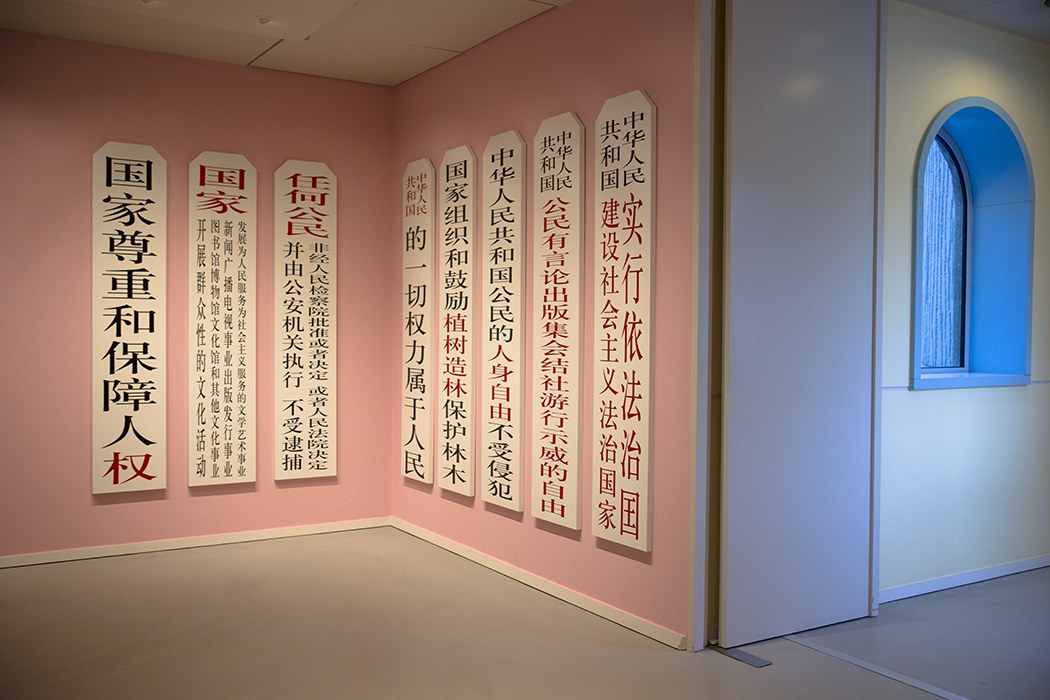 国家尊重和保障人权
国家
发展为人民服务为社会主义服务的文学艺术事业
新闻广播电视事业出版发行事业
图书馆博物馆文化馆和其他文化事业
开展群众性的文化活动
任何公民
非经人民检察院批准或者决定 或者人民法院决定
并由公安机关执行 不受逮捕
中华人民
共和国
的一切权力属于人民
国家组织和鼓励植树造林保护林木
中华人民共和国公民的人身自由不受侵犯
中华人民
共和国
公民有言论出版集会结社游行示威的自由
中华人民
共和国
实行依法治国
建设社会主义法治国家